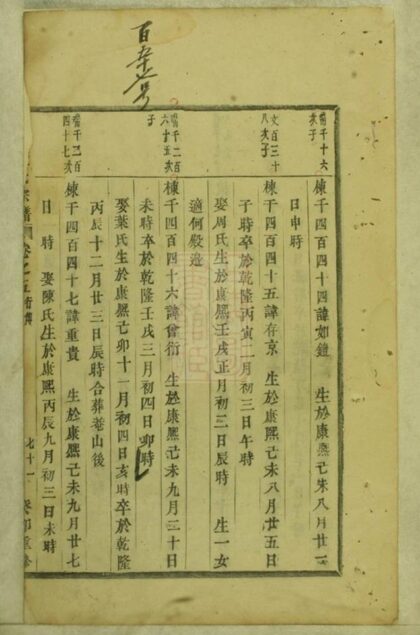 棟千四百四十四諱如鐘 生於康熙己未八月廿二
日申時
棟千四百四十五諱存京 生於康熙己未八月廿五日
子時卒於乾隆丙寅二月初三日午時
娶周氏生於康熙壬戌正月初三日辰時 生一女
適何殿邉
棟千四百四十六諱曾衍 生於康熙己未九月三十日
未時卒於乾隆壬戌三月初四日卯時
娶葉氏生於康熙己卯十一月初四亥時卒於乾隆
丙辰十二月廿三日辰時合葬巷山後
棟千四百四十七諱重貴 生於康熙己未九月廿七
日 時 娶陳氏生於康熙丙辰九月初三日未時
千十六
次子
文百三十
八次子
千二百
六十五次
子
千二百
四十七次
七十一